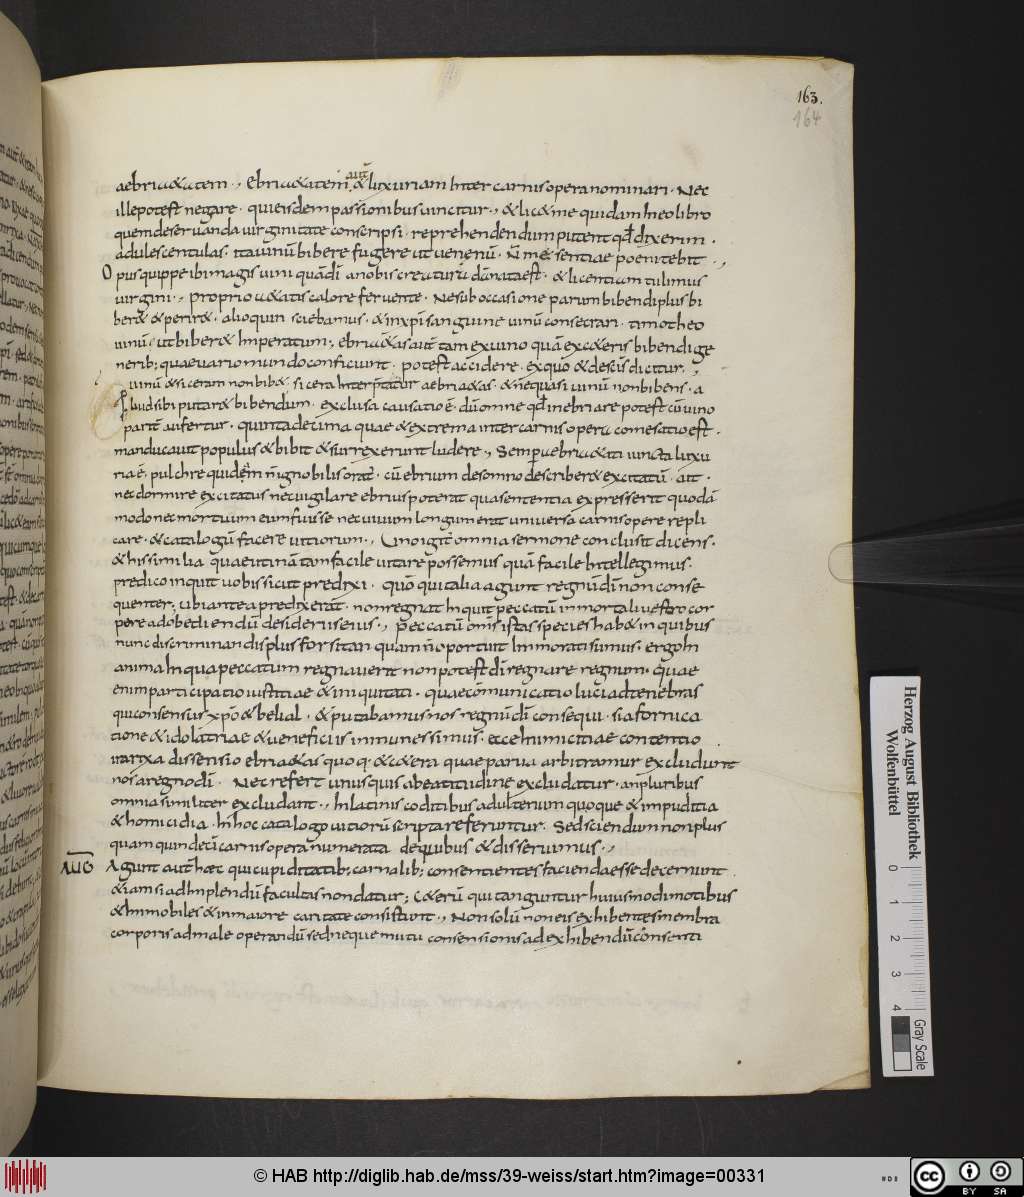 163.
164
aebriu&atem ., Ebriu&atem aut̄ & luxuriam Inter carnis opera nominari . Nec
ille potest negare . qui eisdem passionibus uincitur ., & lic& me quidam In eo libro
quem de seruanda uirginitate conscripsi . reprehendendum putent qđ dixerim .
adulescentulas . ita uinū bibere fugere ut uenenū . N̄ me sentiae poenitebit .,
Opus quippe ibi magis uini quā dī a nobis creatura dānata est . & licentiam tulimus
uirgini ., proprio &atis calore feruente . Ne sub occasione parum bibendi plus bi
ber& & perir& . alioquin sciebamus . & in xp̄i sanguine uinū consecrari . timotheo
uinū . ut biber& Imperatum ; ebri&as aut̄ tam ex uino quā ex c&eris bibendi ge
nerib; quae uario mundo conficiunt . potest accidere . ex quo & de sc̄is dicitur .,
uinū & siceram non bib& . sicera Interpr̄tatur aebri&as . & ne quasi uinū non bibens . a
liud sibi putar& bibendum . exclusa causatio ē . dū omne qđ inebriare potest cū uino
partē aufertur . quinta decima quae & extrema inter carnis opera comesatio est .
manducauit populus & bibit & surrexerunt ludere ., Semper ebri&ati iuncta luxu
ria ē . pulchre quidem n̄ ignobilis orat̄ . cū ebrium de somno describer& excitatū . ait .
nec dormire excitatus nec uigilare ebrius poterat qua sententia expresserit quodā
modo nec mortuum eum fuisse nec uiuum longum erat uniuersa carnis opere repli
care . & catalogū facere uitiorum ., Uno igit̄ omnia sermone conclusit dicens .
& his similia quae utinā tam facile uitare possemus quā facile Intellegimus .
predico inquit uobis sicut predixi . quō qui talia agunt regnū dī non conse
quenter ; ubi antea predixerat . non regnat Inquit peccatū in mortali uestro cor
pere ad obediendū desideriis eius ., peccatū om̄s istas species hab& in quibus
nunc discriminandis plus forsitan quam n̄ oportuit Inmorati sumus . ergo In
anima In qua peccatum regnauerit non potest dī regnare regnum . quae
enim participatio iustitiae & iniquitati . quae cōmunicatio luci ad tenebras
qui consensus xp̄o & belial . & putabamus nos regnū dī consequi . si a fornica
tione & idolatriae & ueneficiis inmunes simus . ecce Inimicitiae contentio .
ira rixa dissensio ebri&as quoq . & c&era quae parua arbitramur excludunt
nos a regno dī . Nec refert unus quis a beatitudine excludatur . an pluribus
omnia similiter excludant ., In latinis codicibus adulterium quoque & impudicitia
& homicidia . In hoc catalogo uitiorū scripta referuntur . Sed sciendum non plus
quam quindecī carnis opera numerata de quibus & disseruimus .,
AUḠ Agunt aut̄ haec qui cupiditatib; carnalib; consentientes facienda esse decernunt .
&iam si ad Inplendū facultas non datur ; C&erū qui tanguntur huiusmodi motibus
& Immobiles & in maiore caritate consistunt ., Non solū non eis exhibentes membra
corporis ad male operandū sed neque nutu consensionis ad exhibendū consenti
Herzog August Bibliothek
Wolfenbüttel
0 1 2 3 4
Gray Scale
© HAB http://diglib.hab.de/mss/39-weiss/start.htm?image=00331
cc BY SA